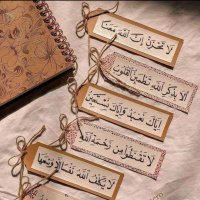 لا تحزن إن الله معنا
ألا بذكر الله تطمئن القلوب
إياك نعبد وإياك نستعين
لا تقنطوا من رحمة الله
لا يكلف الله نفسا إلا وسعها